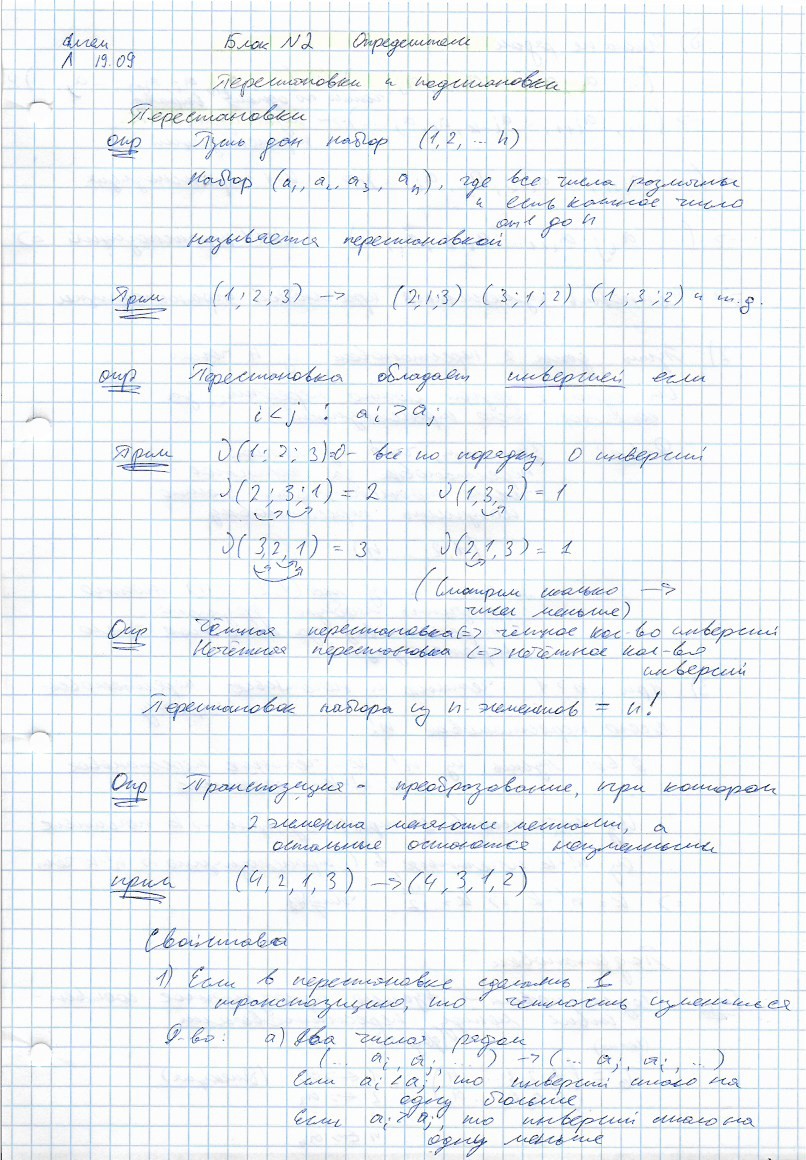 Алгем Блок N2 Определители
Л 19.09
Перестановки и подстановки
Перестановки
Опр Пусть дан набор (1,2, ... n)
Набор (a₁, a₂, a₃, aₙ), где все числа различны
и есть каждое число
от 1 до n
называется перестановкой
Прим (1; 2; 3) → (2;1;3) (3;1;2) (1;3;2) и т.д.
опр Перестановка обладает инверсией если
i<j : aᵢ > aⱼ
Прим J(1; 2; 3)=0 - все по порядку, 0 инверсий
J(2; 3; 1) = 2 J(1,3,2) = 1
J(3,2,1) = 3 J(2,1,3) = 1
(Смотрим только →
числа меньше)
Опр Чётная перестановка <=> чётное кол-во инверсий
Нечётная перестановка <=> нечётное кол-во
инверсий
Перестановок набора из n элементов = n!
Опр Транспозиция - преобразование, при котором
2 элемента меняются местами, а
остальные остаются неизменными
прим (4,2,1,3) → (4,3,1,2)
Свойства
1) Если в перестановке сделать 1
транспозицию, то чётность изменится
Д-во: а) Два числа рядом
(... aᵢ, aⱼ, ... ) → (... aⱼ, aᵢ, ...)
Если aᵢ < aⱼ, то инверсий стало на
одну больше
Если aᵢ > aⱼ, то инверсий стало на
одну меньше